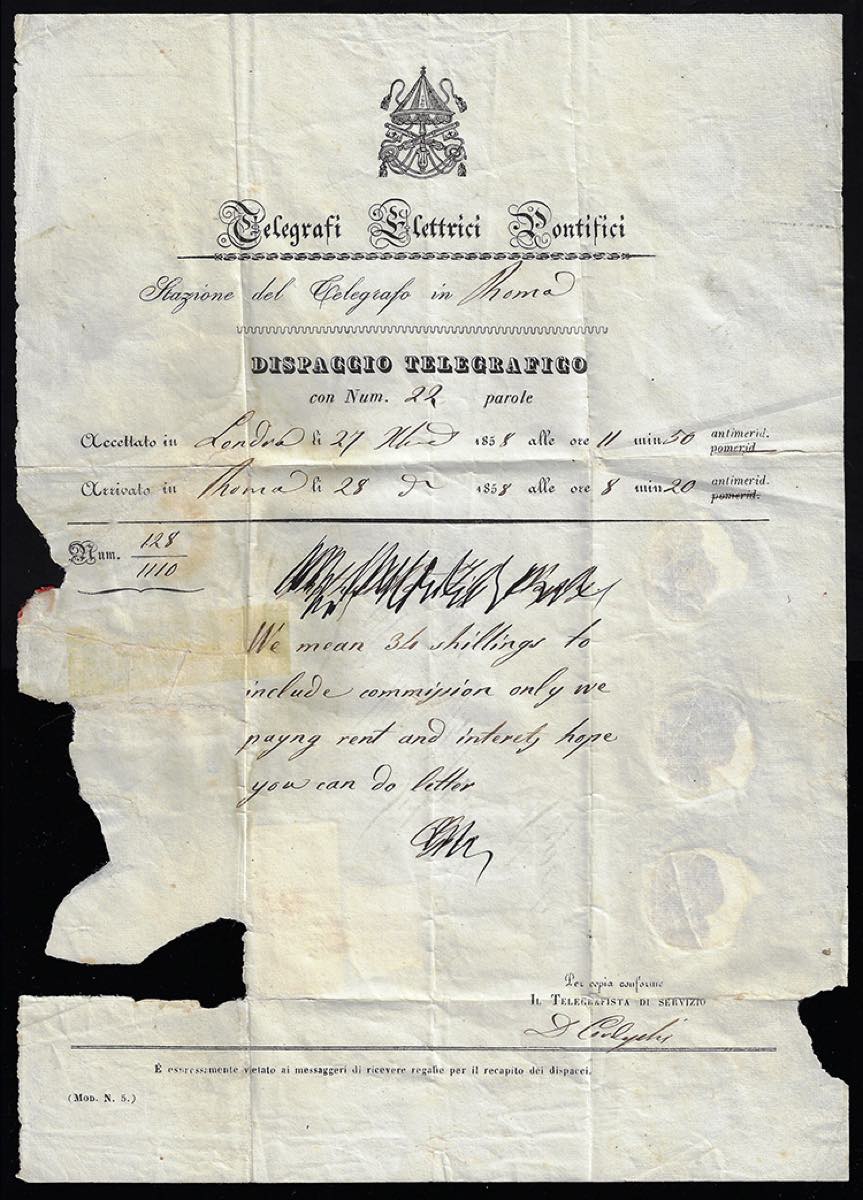 Telegrafi Elettrici Pontifici
Stazione del Telegrafo in Roma
DISPACCIO TELEGRAFICO
con Num. 22 parole
Accettato in Londra li 27 Xbre 1858 alle ore 11 min 50 antimerid. pomerid.
Arrivato in Roma li 28 1858 alle ore 8 min 20 antimerid. pomerid.
Num. 128
1110
We mean 34 shillings to
include commission only we
payng rent and interets hope
you can do letter
Per copia conforme
IL TELEGRAFISTA DI SERVIZIO
È espressamente vietato ai messaggeri di ricevere regalie per il recapito dei dispacci.
(MOD. N. 5.)